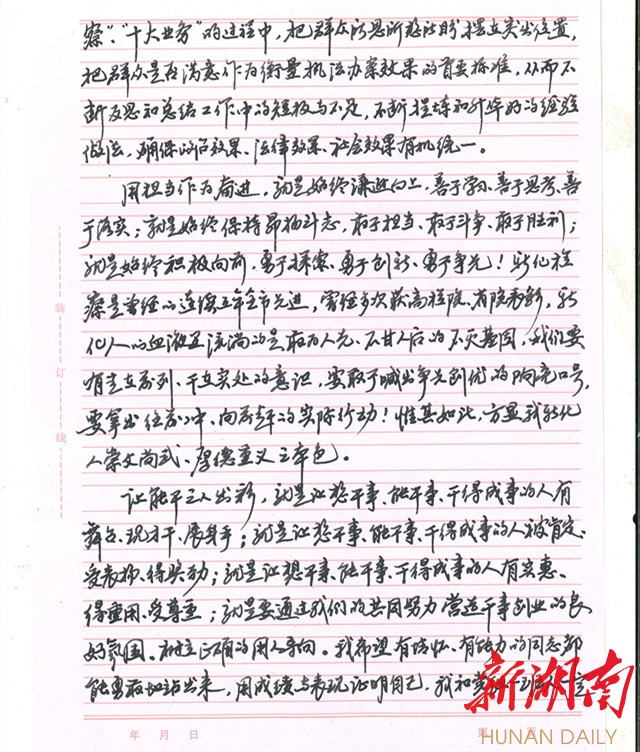 察”、“十大业务”的过程中，把群众所思所想所盼摆在突出位置，
把群众是否满意作为衡量执法办案效果的首要标准，从而不
断反思和总结工作中的短板与不足，不断提炼和升华好的经验
做法，确保政治效果、法律效果、社会效果有机统一。
用担当作为奋进，就是始终谦逊向上，善于学习、善于思考、善
于落实；就是始终保持昂扬斗志，敢于担当、敢于斗争、敢于胜利；
就是始终积极向前，勇于探索、勇于创新、勇于争先！新化检
察是曾经的连续三年全市先进，曾经多次获高检院、省院表彰，新
化人的血液里流淌的是敢为人先、不甘人后的不灭基因，我们要
有走在前列、干在实处的意识，要敢于喊出争先创优的响亮口号，
要拿出任务、向前走的实际行动！惟其如此，方显我新化
人崇文尚武、厚德重义之本色。
让能干之人出彩，就是让想干事、能干事、干得成事的人有
舞台、现才干、展身手；就是让想干事、能干事、干得成事的人被肯定、
受表扬、得奖励；就是让想干事、能干事、干得成事的人有实惠、
得重用、受尊重；就是要通过我们的共同努力营造干事创业的良
好氛围、树立正确的用人导向。我希望有情怀、有能力的同志都
能勇敢地站出来，用成绩与表现证明自己，我和党组班子一定
装
订
线
年 月 日
第
新湖南
HUNAN DAILY